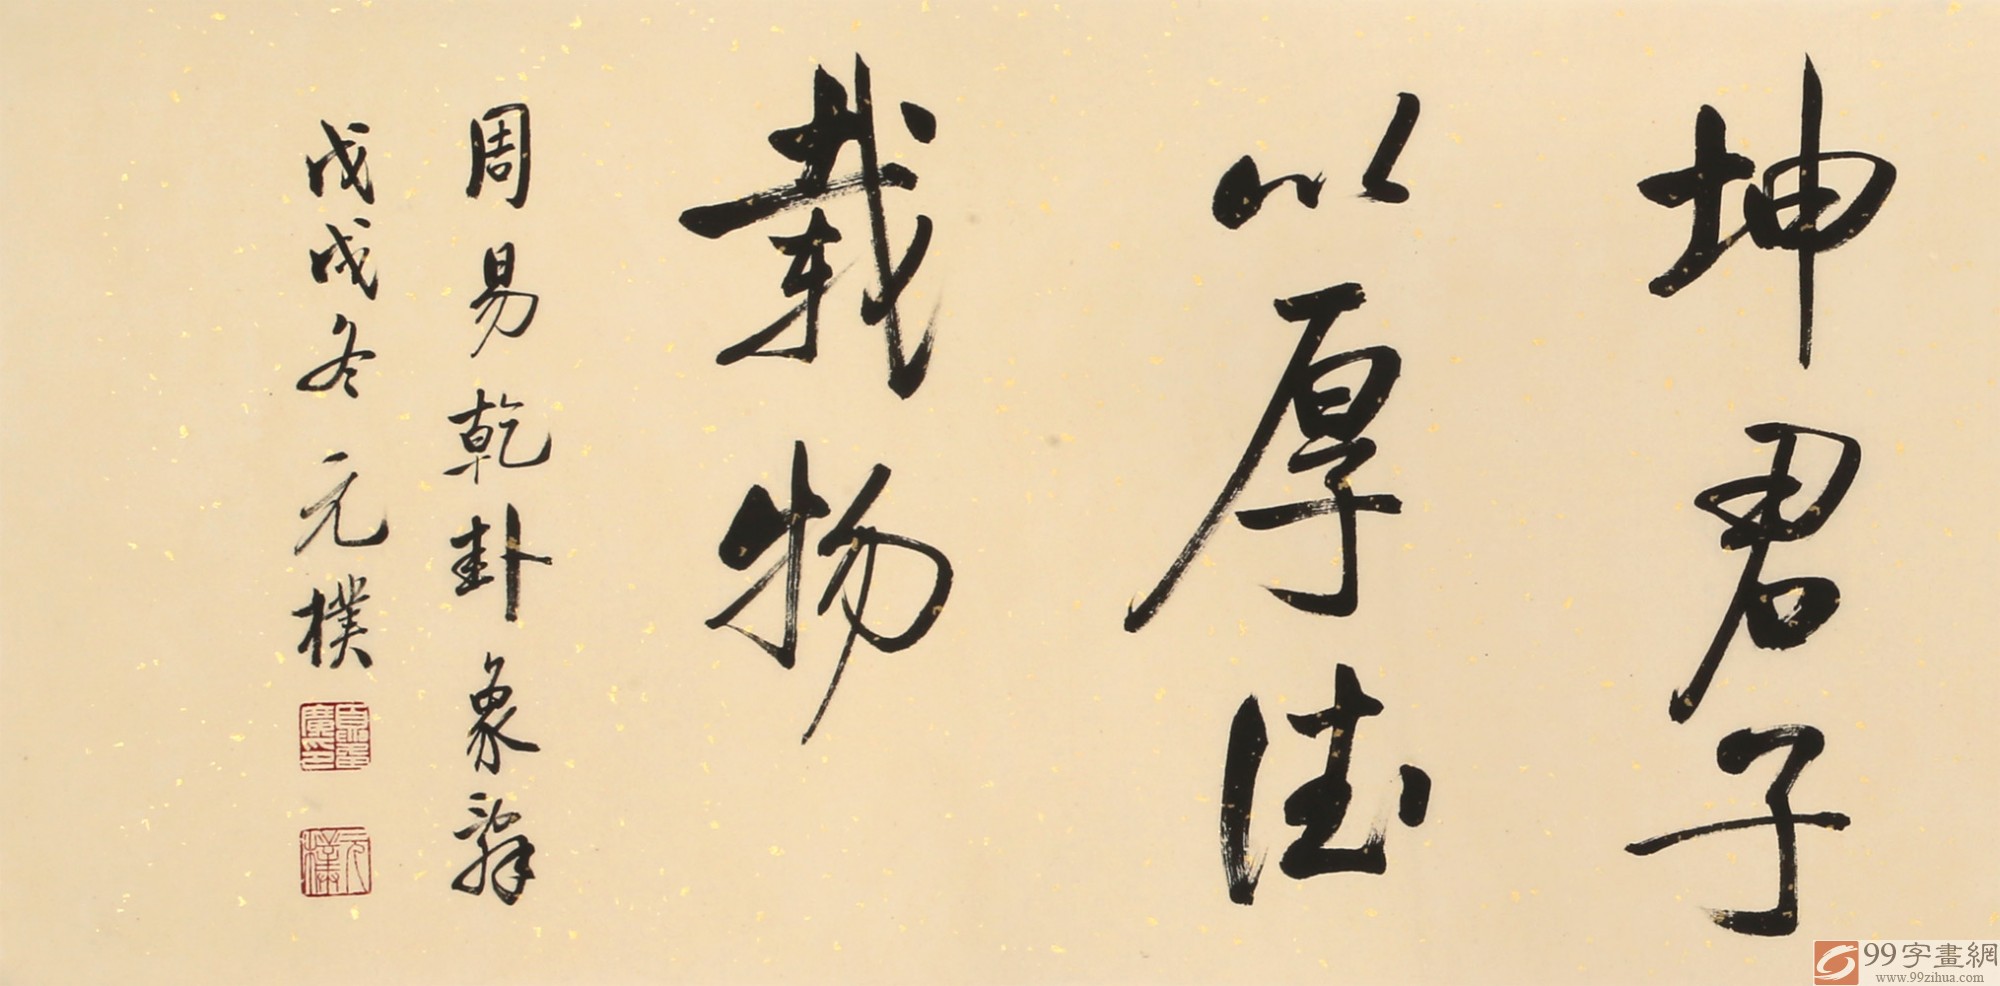 坤君子
以厚德
载物
周易乾卦象辞
戊戌冬元樸
元樸
99字畫網
www.99zihua.com